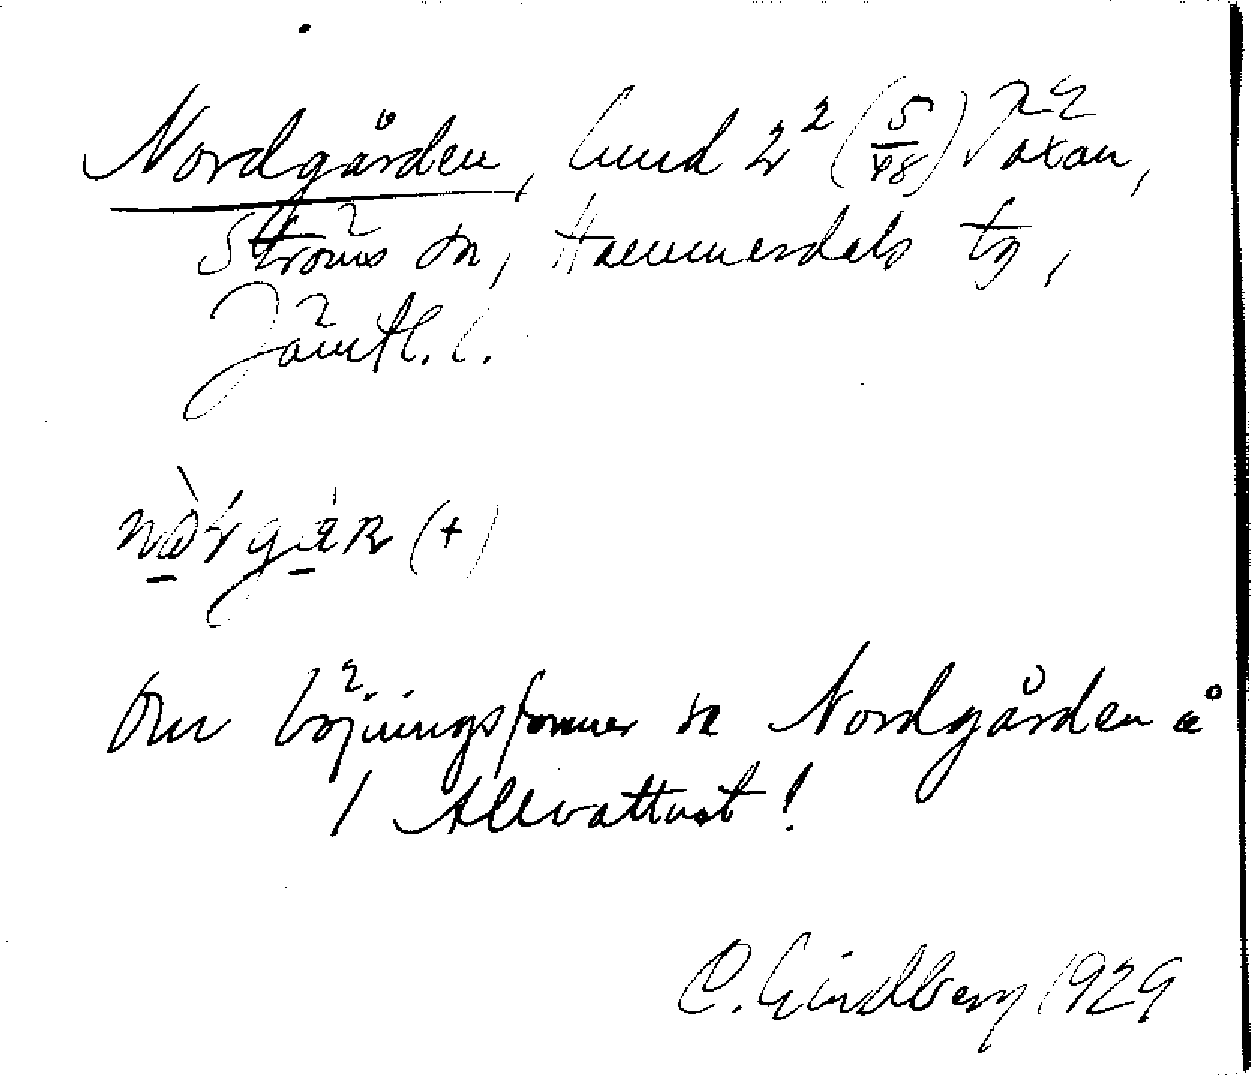 Nordgården, hmd 2² (5/48) Jäxån,
Ströms sn, Hammerdals tg,
Jämtl. l.
Om böjningsformer se Nordgården å
1 Allvattnet!
C. Lindberg 1929